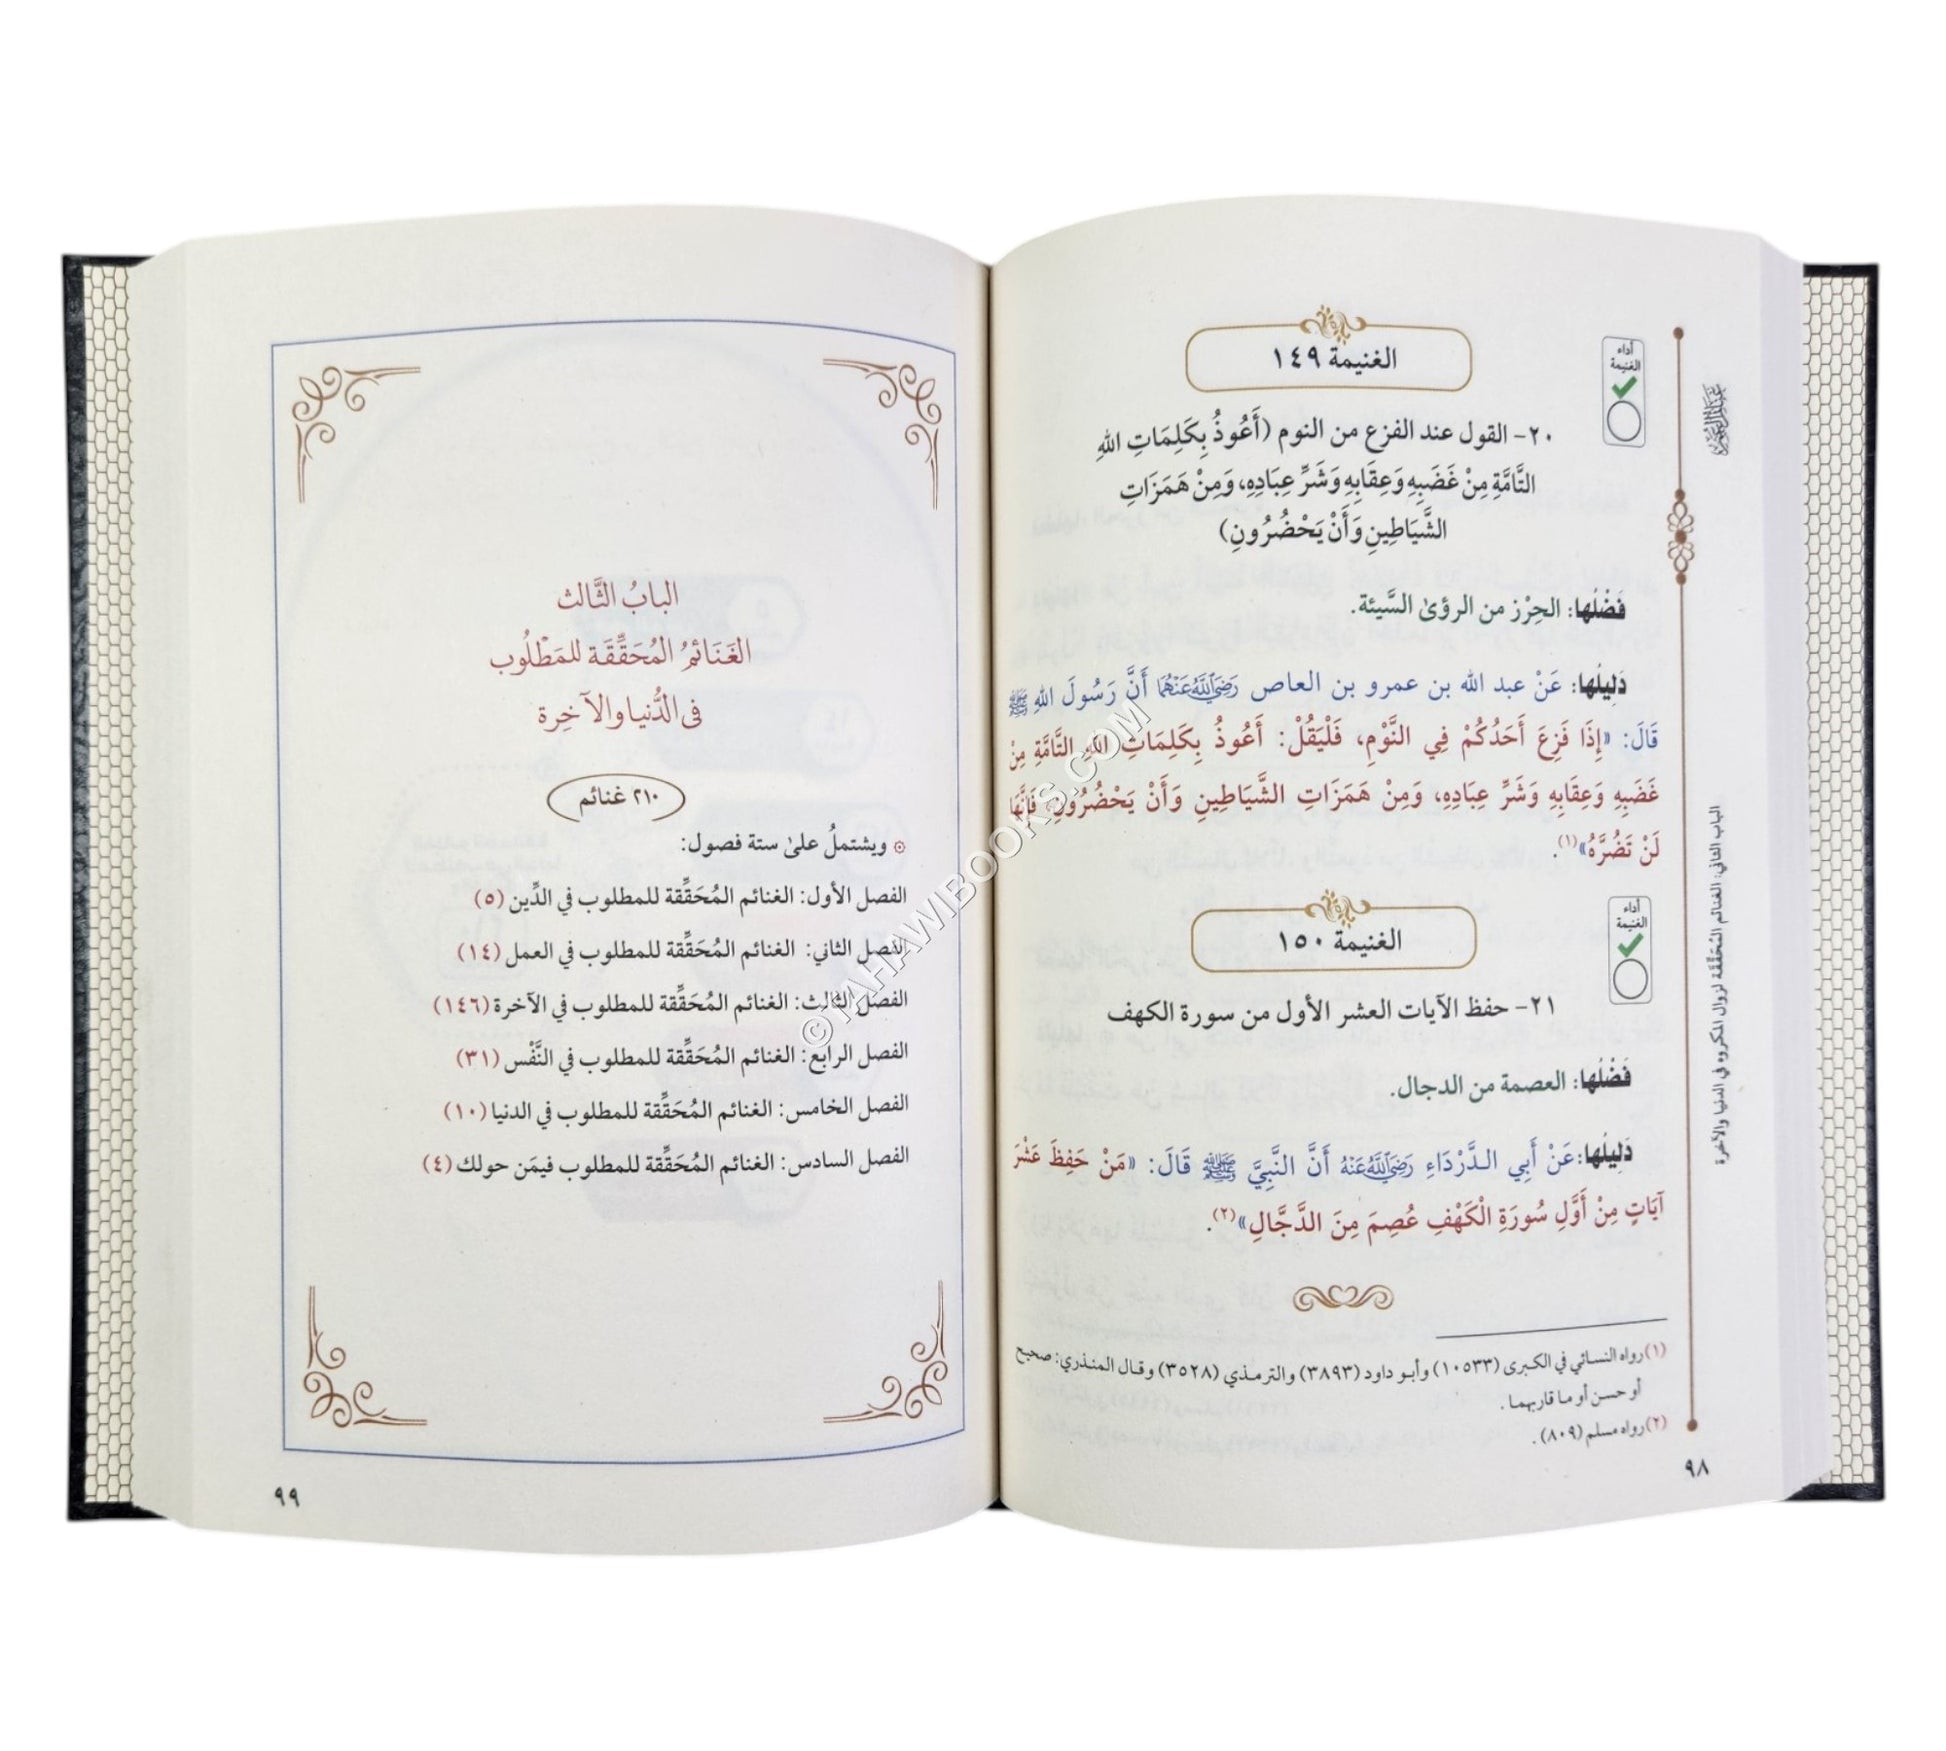 أداء
الغنيمة
الغنيمة ١٤٩
٢٠- القول عند الفزع من النوم (أَعُوذُ بِكَلِمَاتِ اللهِ
التَّامَّةِ مِنْ غَضَبِهِ وَعِقَابِهِ وَشَرِّ عِبَادِهِ، وَمِنْ هَمَزَاتِ
الشَّيَاطِينِ وَأَنْ يَحْضُرُونِ)
فَضْلُها: الحِرْز من الرؤىٰ السَّيئة.
دَلِيلُها: عَنْ عبد الله بن عمرو بن العاص رَضِيَ اللَّهُ عَنْهُمَا أَنَّ رَسُولَ اللهِ ﷺ
قَالَ: «إِذَا فَزِعَ أَحَدُكُمْ فِي النَّوْمِ، فَلْيَقُلْ: أَعُوذُ بِكَلِمَاتِ اللهِ التَّامَّةِ مِنْ
غَضَبِهِ وَعِقَابِهِ وَشَرِّ عِبَادِهِ، وَمِنْ هَمَزَاتِ الشَّيَاطِينِ وَأَنْ يَحْضُرُونِ، فَإِنَّهَا
لَنْ تَضُرَّهُ»(١).
أداء
الغنيمة
الغنيمة ١٥٠
٢١- حفظ الآيات العشر الأول من سورة الكهف
فَضْلُها: العصمة من الدجال.
دَلِيلُها: عَنْ أَبِي الدَّرْدَاءِ رَضِيَ اللَّهُ عَنْهُ أَنَّ النَّبِيَّ ﷺ قَالَ: «مَنْ حَفِظَ عَشْرَ
آيَاتٍ مِنْ أَوَّلِ سُورَةِ الْكَهْفِ عُصِمَ مِنَ الدَّجَّالِ»(٢).
(١) رواه النسائي في الكبرى (١٠٥٣٣) وأبو داود (٣٨٩٣) والترمذي (٣٥٢٨) وقال المنذري: صحيح
أو حسن أو ما قاربهما.
(٢) رواه مسلم (٨٠٩).
٩٨
الباب الثاني: الغنائم المُحَقِّقَة لزوال المكروه في الدنيا والآخرة
البابُ الثَّالث
الغَنَائمُ المُحَقِّقَة للمَطْلُوب
في الدُّنيا والآخِرة
٢١٠ غنائم
ويشتملُ علىٰ ستة فصول:
الفصل الأول: الغنائم المُحَقِّقة للمطلوب في الدِّين (٥)
الفصل الثاني: الغنائم المُحَقِّقة للمطلوب في العمل (١٤)
الفصل الثالث: الغنائم المُحَقِّقة للمطلوب في الآخرة (١٤٦)
الفصل الرابع: الغنائم المُحَقِّقة للمطلوب في النَّفْس (٣١)
الفصل الخامس: الغنائم المُحَقِّقة للمطلوب في الدنيا (١٠)
الفصل السادس: الغنائم المُحَقِّقة للمطلوب فيمَن حولك (٤)
٩٩